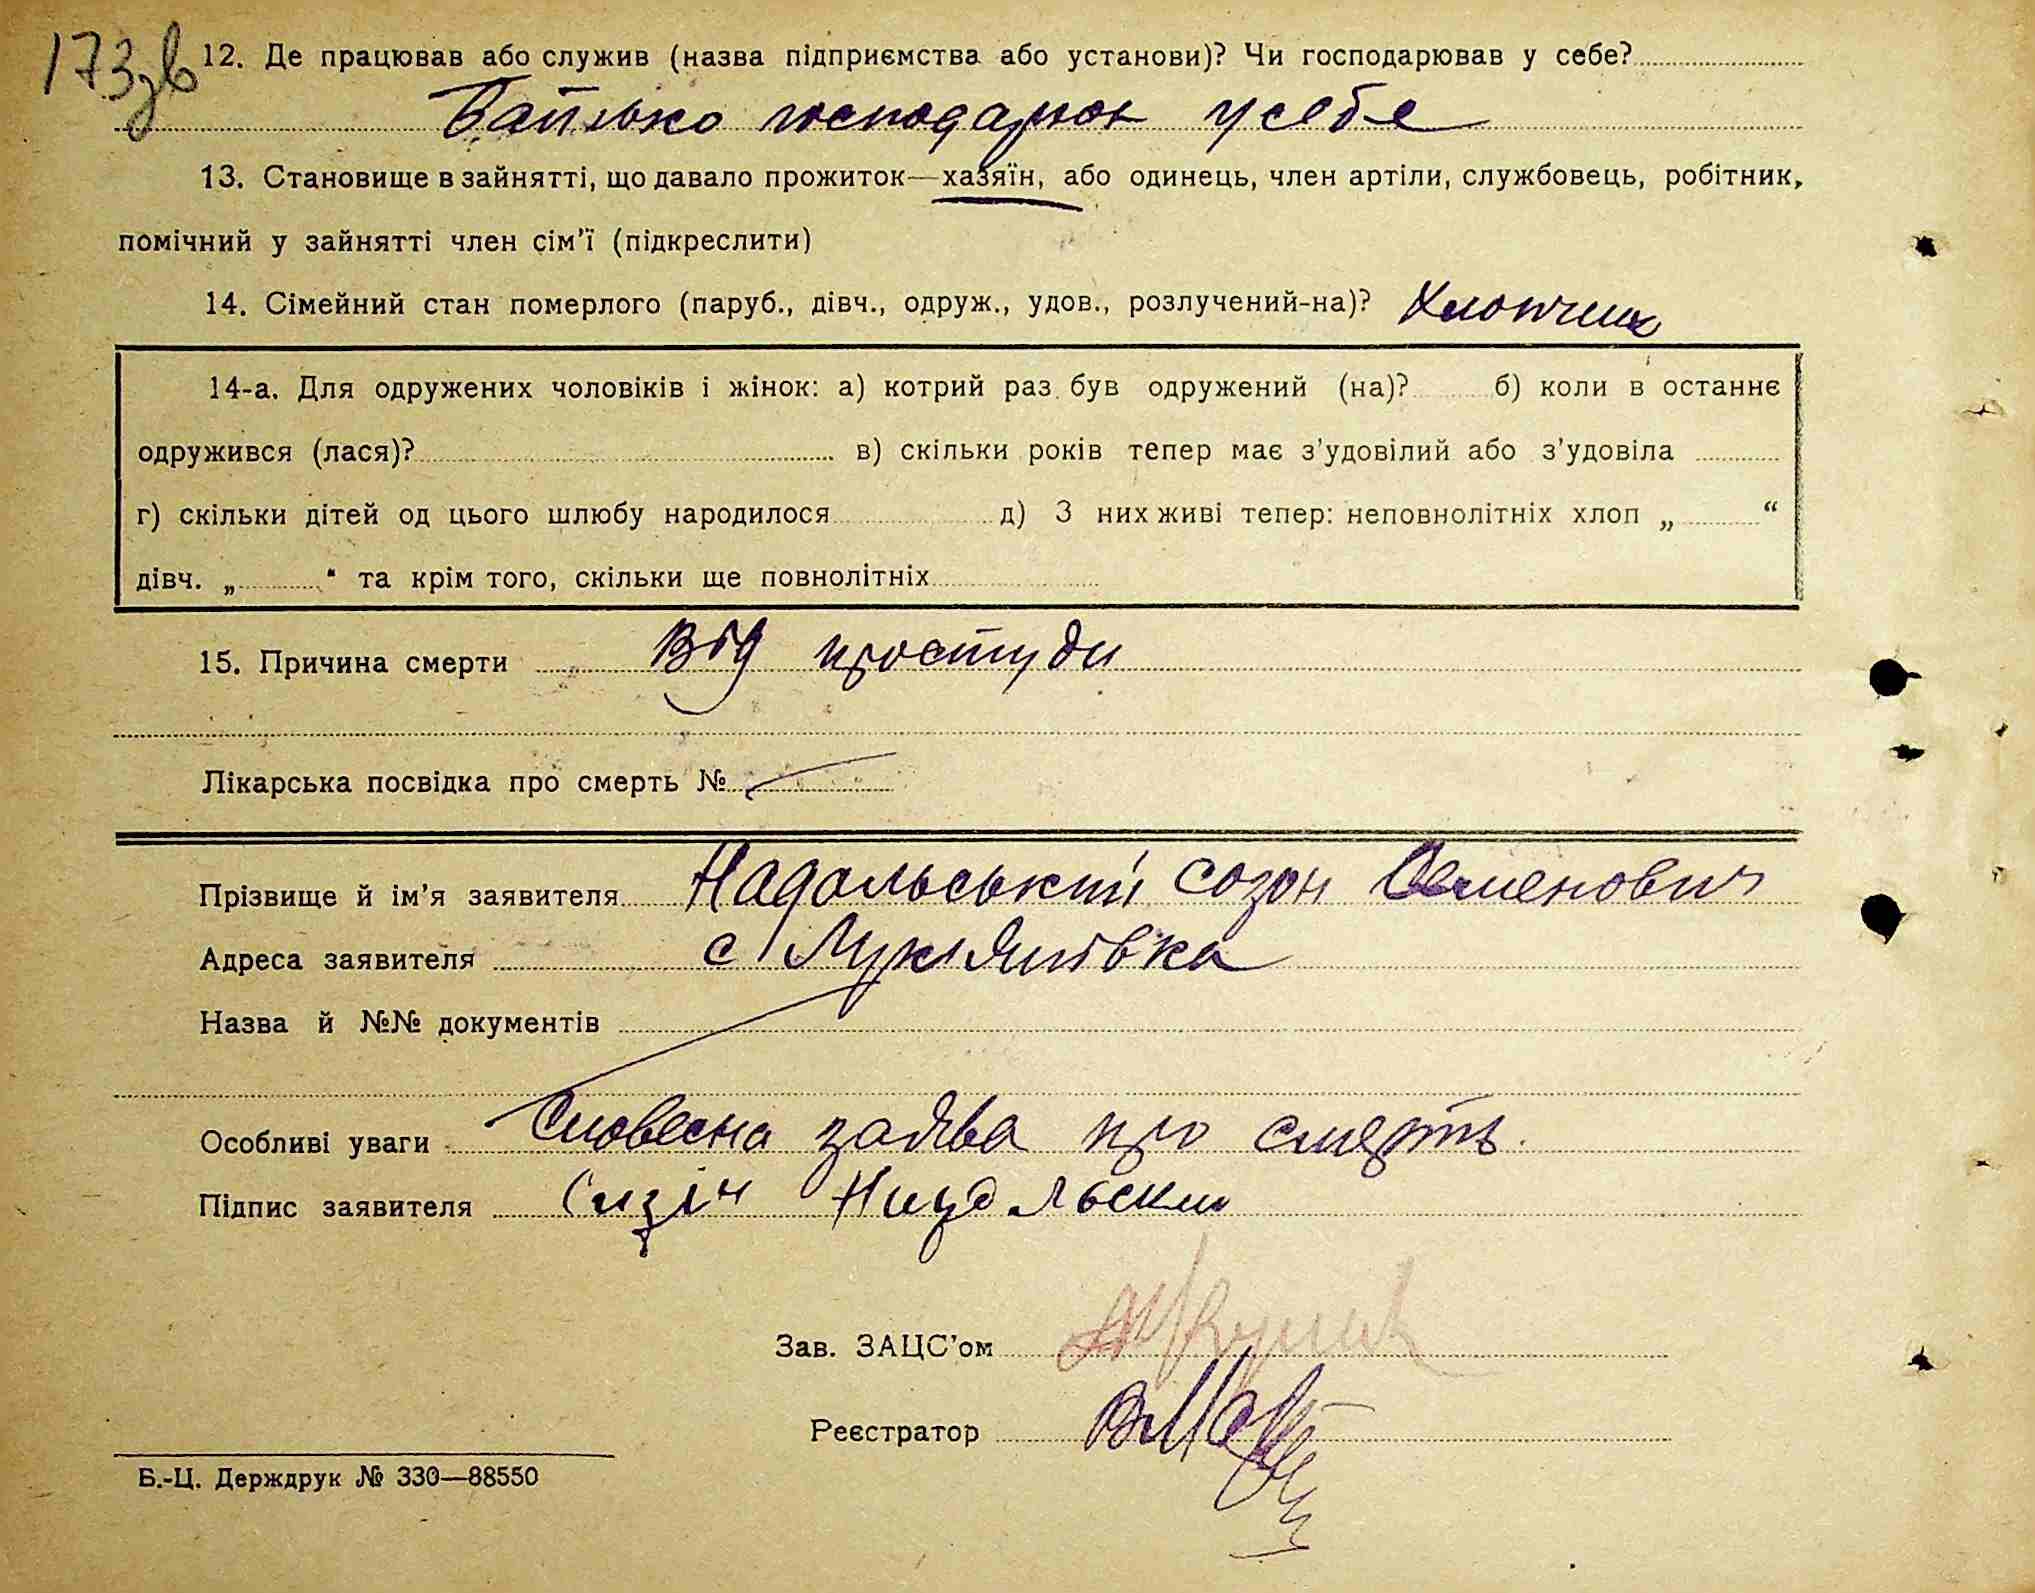 173 зв
12. Де працював або служив (назва підприємства або установи)? Чи господарював у себе?
Батько господарює у себе
13. Становище в зайнятті, що давало прожиток—хазяїн, або одинець, член артіли, службовець, робітник,
помічний у зайнятті член сім’ї (підкреслити)
14. Сімейний стан померлого (паруб., дівч., одруж., удов., розлучений-на)? Хлопчик
14-а. Для одружених чоловіків і жінок: а) котрий раз був одружений (на)? б) коли в останнє
одружився (лася)? в) скільки років тепер має з’удовілий або з’удовіла
г) скільки дітей од цього шлюбу народилося д) З них живі тепер: неповнолітніх хлоп „ “
дівч. „ “ та крім того, скільки ще повнолітніх
15. Причина смерти Від простуди
Лікарська посвідка про смерть №
Прізвище й ім’я заявителя Надольський Созон Семенович
Адреса заявителя с Лукянівка
Назва й №№ документів
Особливі уваги Словесна заява про смерть.
Підпис заявителя
Зав. ЗАЦС’ом
Реєстратор
Б.-Ц. Держдрук № 330—88550